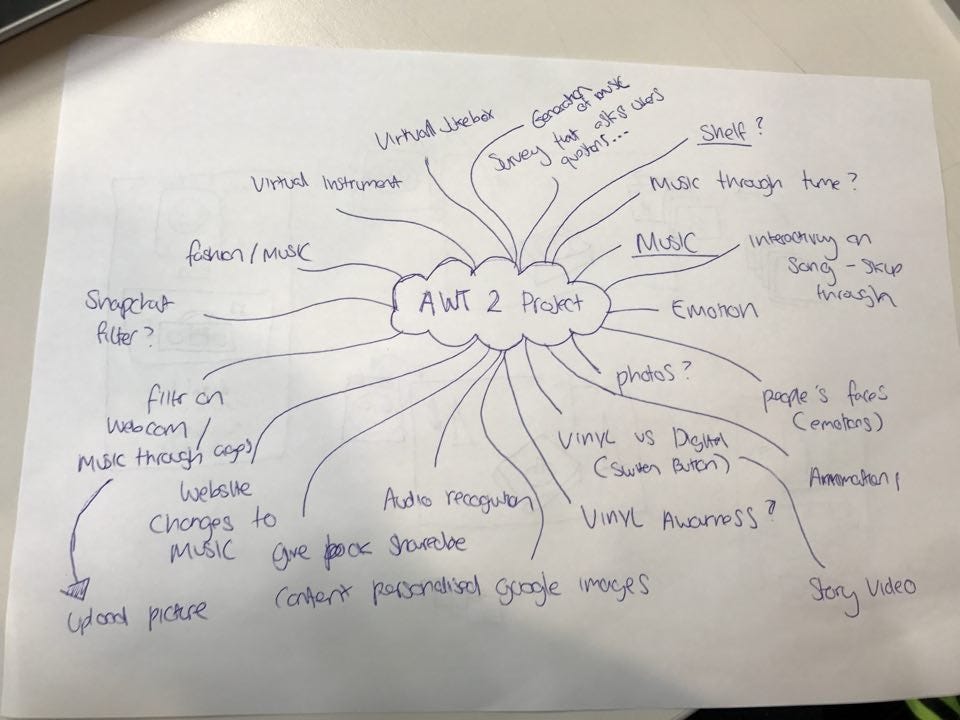 Virtual Jukebox
Generation
of music
Survey that asks users
questions...
Shelf?
Virtual Instrument
Music through time?
fashion / Music
Music
interactivity on
Song - Skip
through
Snapchat
filter?
AWT 2 Project
Emotion
photos?
people's faces
(emotions)
filtr on
webcam /
Music through ages /
Vinyl vs Digital
(Switch Button)
Website
changes to
Music
Audio recognition
Vinyl Awarness?
give back sharable
Content personalised google images
Upload picture
Story Video